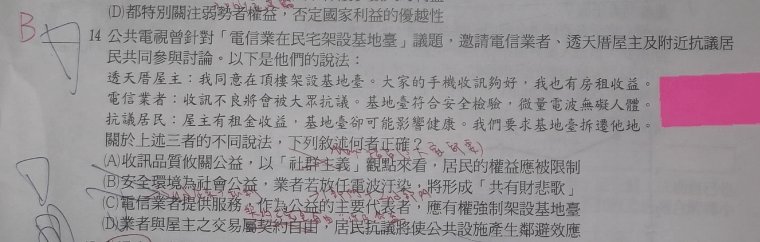 (D)都特別關注弱勢者權益，否定國家利益的優越性
B
14 公共電視曾針對「電信業在民宅架設基地臺」議題，邀請電信業者、透天厝屋主及附近抗議居
民共同參與討論。以下是他們的說法：
透天厝屋主：我同意在頂樓架設基地臺。大家的手機收訊夠好，我也有房租收益。
電信業者：收訊不良將會被大眾抗議。基地臺符合安全檢驗，微量電波無礙人體。
抗議居民：屋主有租金收益，基地臺卻可能影響健康。我們要求基地臺拆遷他地。
關於上述三者的不同說法，下列敘述何者正確？
(A)收訊品質攸關公益，以「社群主義」觀點來看，居民的權益應被限制
(B)安全環境為社會公益，業者若放任電波汙染，將形成「共有財悲歌」
(C)電信業者提供服務，作為公益的主要代表者，應有權強制架設基地臺
(D)業者與屋主之交易屬契約自由，居民抗議將使公共設施產生鄰避效應